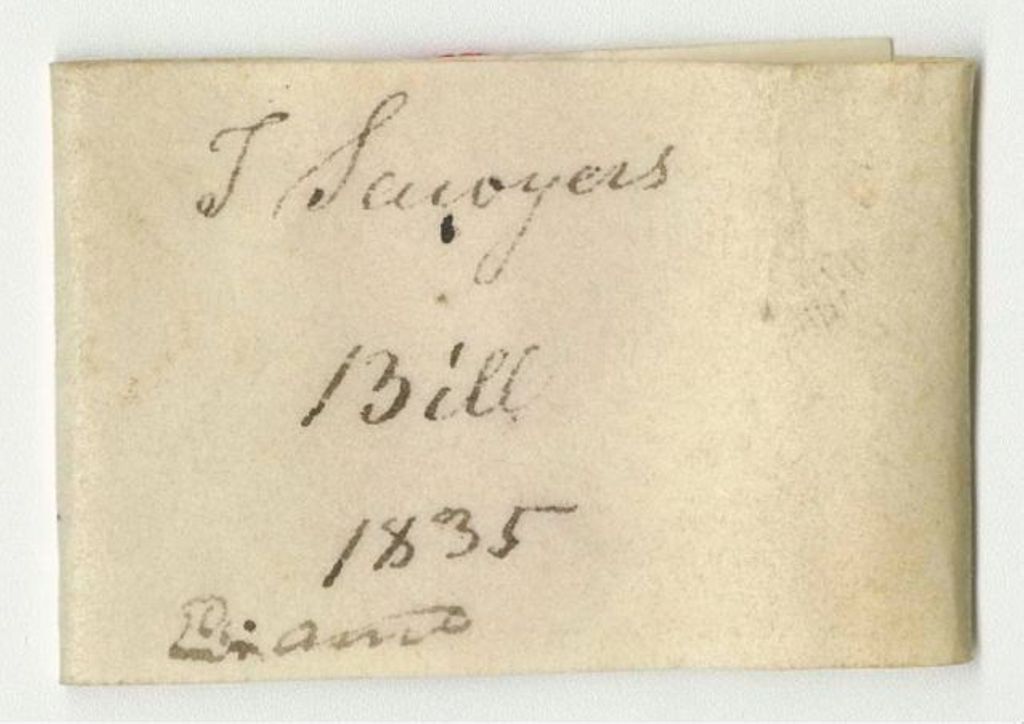 T Sawyers
Bill
1835
Piano